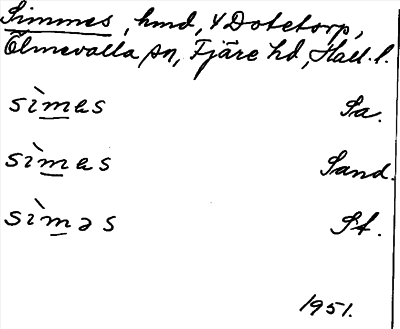 Simmes, hmd, 4 Dotetorp,
Ölmevalla sn, Fjäre hd, Hall. l.
sìmes Sa.
sìmes Sand.
sìməs St.
1951.